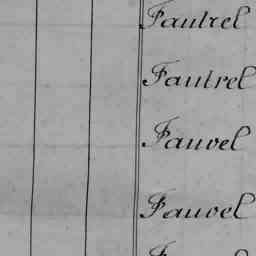 Fautrel
Fautrel
Fauvel
Fauvel